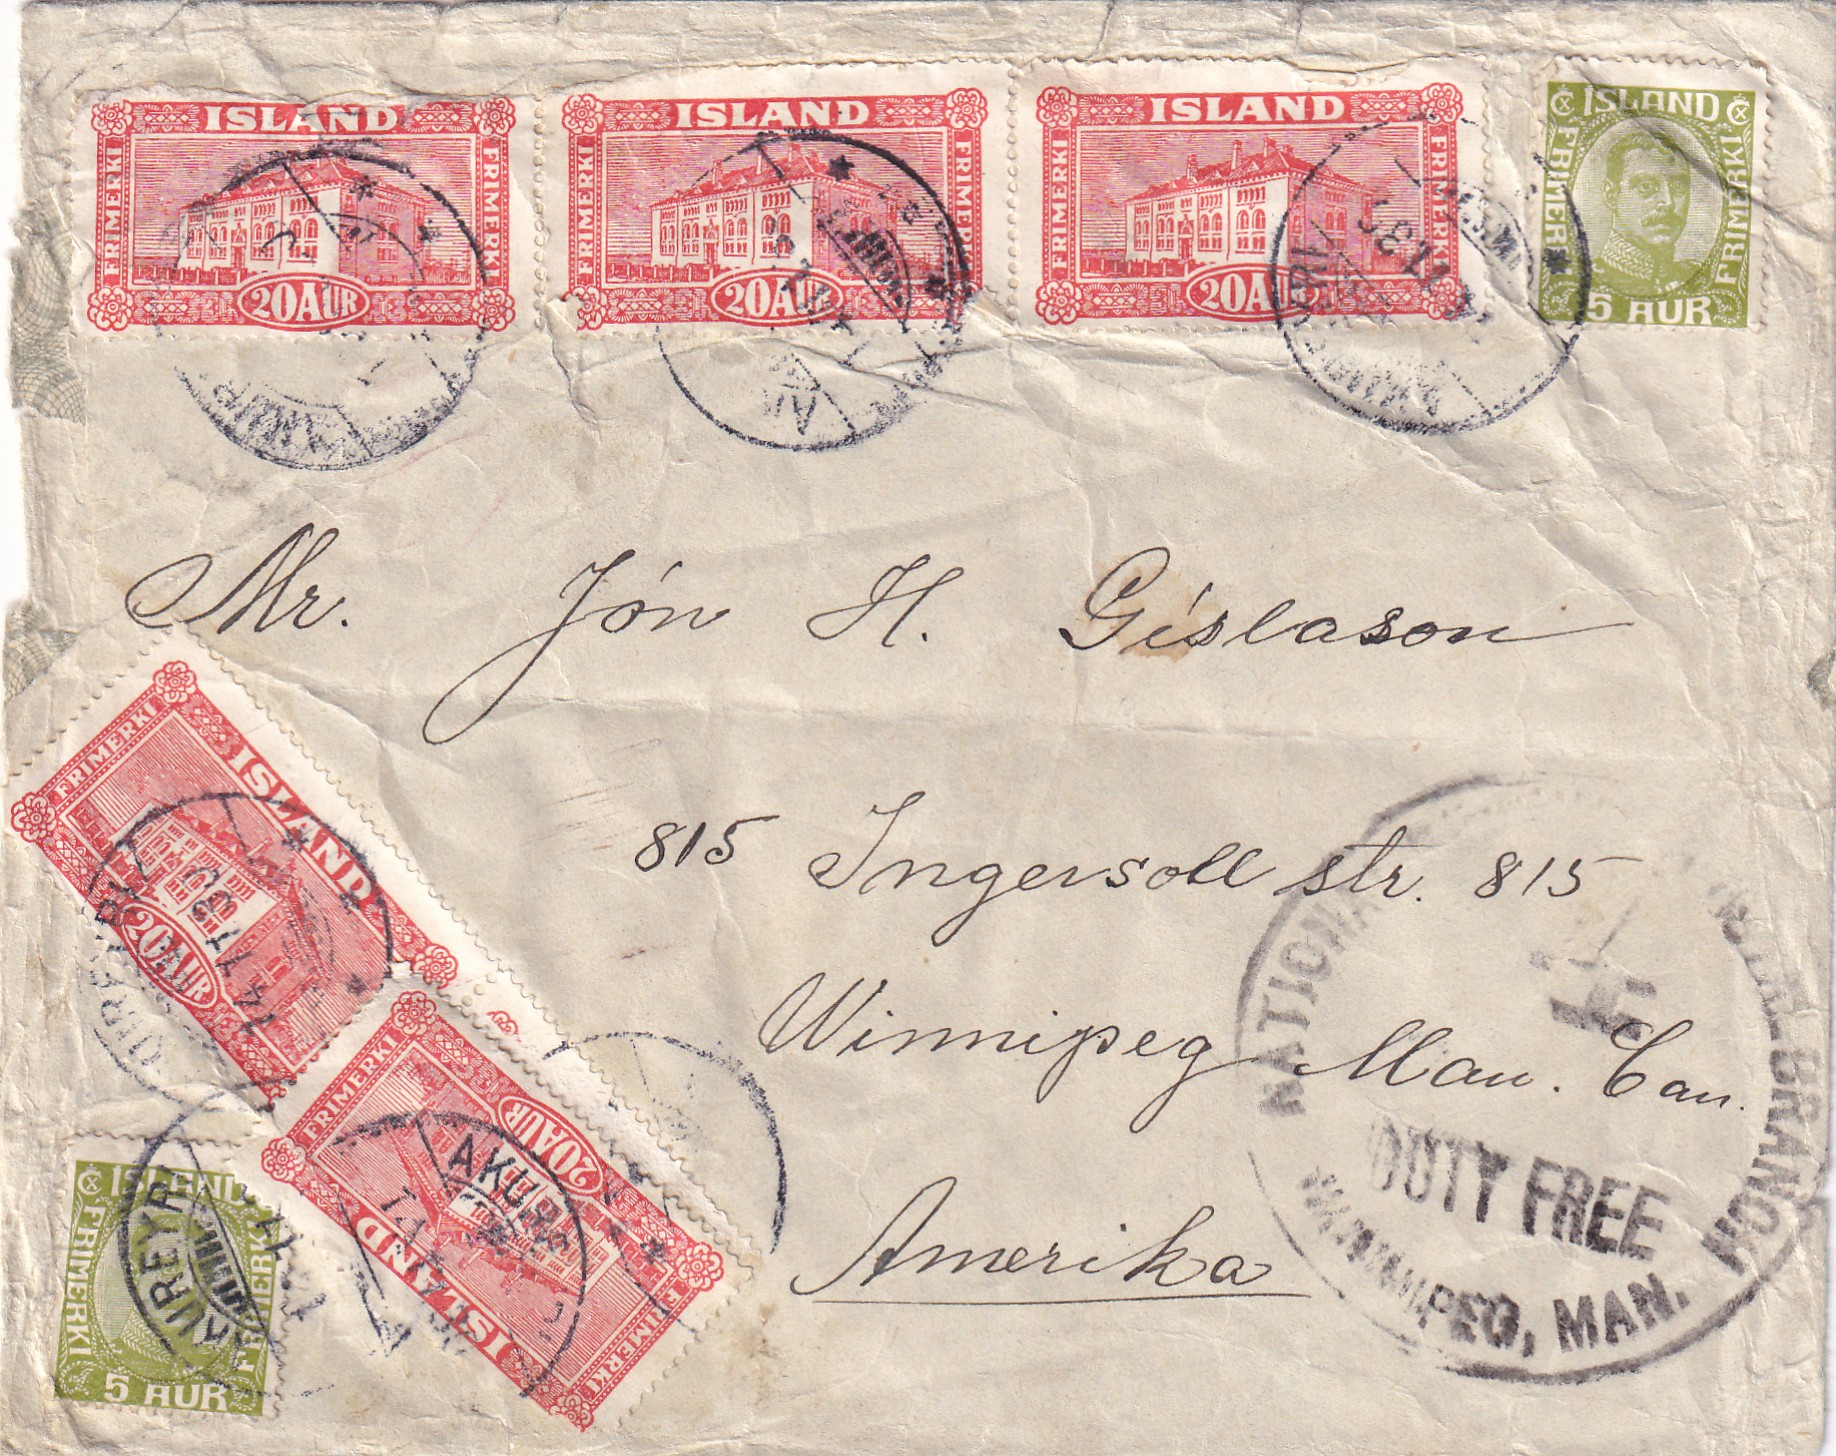 ISLAND
FRIMERKI
FRIMERKI
20 AUR
ISLAND
FRIMERKI
FRIMERKI
20 AUR
ISLAND
FRIMERKI
FRIMERKI
20 AUR
ISLAND
FRIMERKI
FRIMERKI
5 AUR
Mr. Jón H. Gíslason
815 Ingersoll str. 815
Winnipeg Man. Can.
Amerika
ISLAND
FRIMERKI
20 AUR
14 11 30
ISLAND
FRIMERKI
FRIMERKI
20 AUR
ISLAND
FRIMERKI
FRIMERKI
5 AUR
AKUREYRI
NATIONAL BRANCH
DUTY FREE
WINNIPEG, MAN.